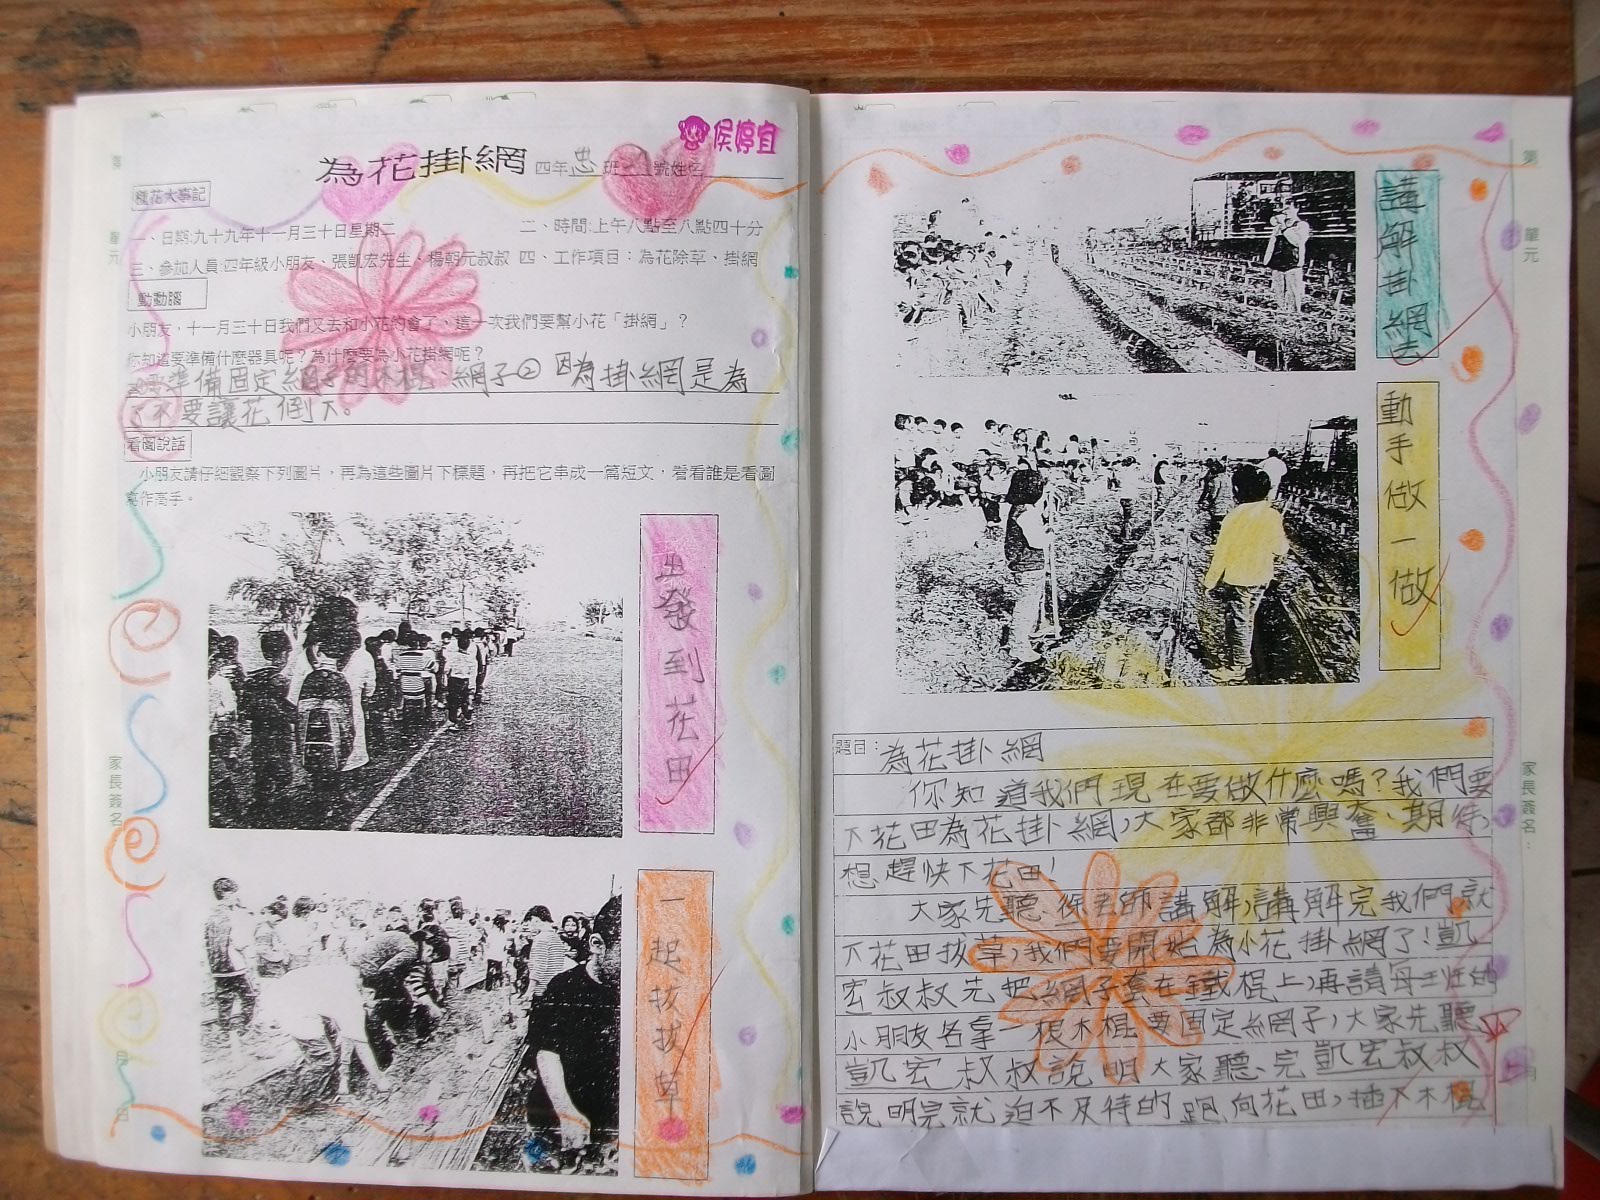 侯婷宜
為花掛網 四年忠班 號姓名
種花大事記
一、日期:九十九年十一月三十日星期二 二、時間:上午八點至八點四十分
三、參加人員:四年級小朋友、張凱宏先生、楊朝元叔叔 四、工作項目：為花除草、掛網
動動腦
小朋友，十一月三十日我們又去和小花約會了，這一次我們要幫小花「掛網」？
你知道要準備什麼器具呢？為什麼要為小花掛網呢？
準備固定網子的木棍、網子② 因為掛網是為
了不要讓花倒下。
看圖說話
小朋友請仔細觀察下列圖片，再為這些圖片下標題，再把它串成一篇短文，看看誰是看圖
寫作高手。
出發到花田
一起拔拔草
第
單元
家長簽名
月
日
講解掛網法
動手做一做
題目：為花掛網
你知道我們現在要做什麼嗎？我們要
下花田為花掛網，大家都非常興奮、期待，
想趕快下花田！
大家先聽徐老師講解，講解完我們就
下花田拔草，我們要開始為小花掛網了！凱
宏叔叔先把網子套在鐵棍上，再請每班的
小朋友名拿一根木棍要固定網子，大家先聽
凱宏叔叔說明大家聽完凱宏叔叔
說明完就迫不及待的跑向花田，插下木棍
第
單元
家長簽名：
月